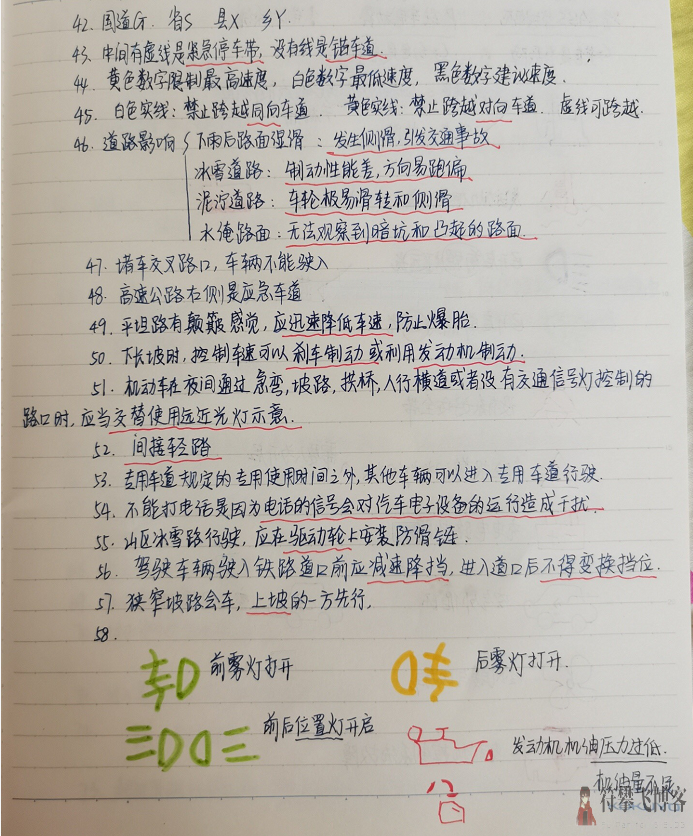 42. 国道G. 省S 县X 乡Y.
43. 中间有虚线是紧急停车带, 没有线是错车道.
44. 黄色数字限制最高速度, 白色数字最低速度, 黑色数字建议速度.
45. 白色实线: 禁止跨越同向车道. 黄色实线: 禁止跨越对向车道. 虚线可跨越.
46. 道路影响 { 下雨后路面湿滑: 发生侧滑, 引发交通事故
冰雪道路: 制动性能差, 方向易跑偏
泥泞道路: 车轮极易滑转和侧滑
水淹路面: 无法观察到暗坑和凸起的路面.
47. 堵车交叉路口, 车辆不能驶入
48. 高速公路右侧是应急车道
49. 平坦路有颠簸感觉, 应迅速降低车速, 防止爆胎.
50. 下长坡时, 控制车速可以刹车制动或利用发动机制动.
51. 机动车在夜间通过急弯, 坡路, 拱桥, 人行横道或者没有交通信号灯控制的
路口时, 应当交替使用远近光灯示意.
52. 间接轻踏
53. 专用车道规定的专用使用时间之外, 其他车辆可以进入专用车道行驶.
54. 不能打电话是因为电话的信号会对汽车电子设备的运行造成干扰.
55. 山区冰雪路行驶, 应在驱动轮上安装防滑链.
56. 驾驶车辆驶入铁路道口前应减速降挡, 进入道口后不得变换挡位.
57. 狭窄坡路会车, 上坡的一方先行.
58.
前雾灯打开 后雾灯打开.
前后位置灯开启
发动机机油压力过低.
机油量不足
符攀飞博客